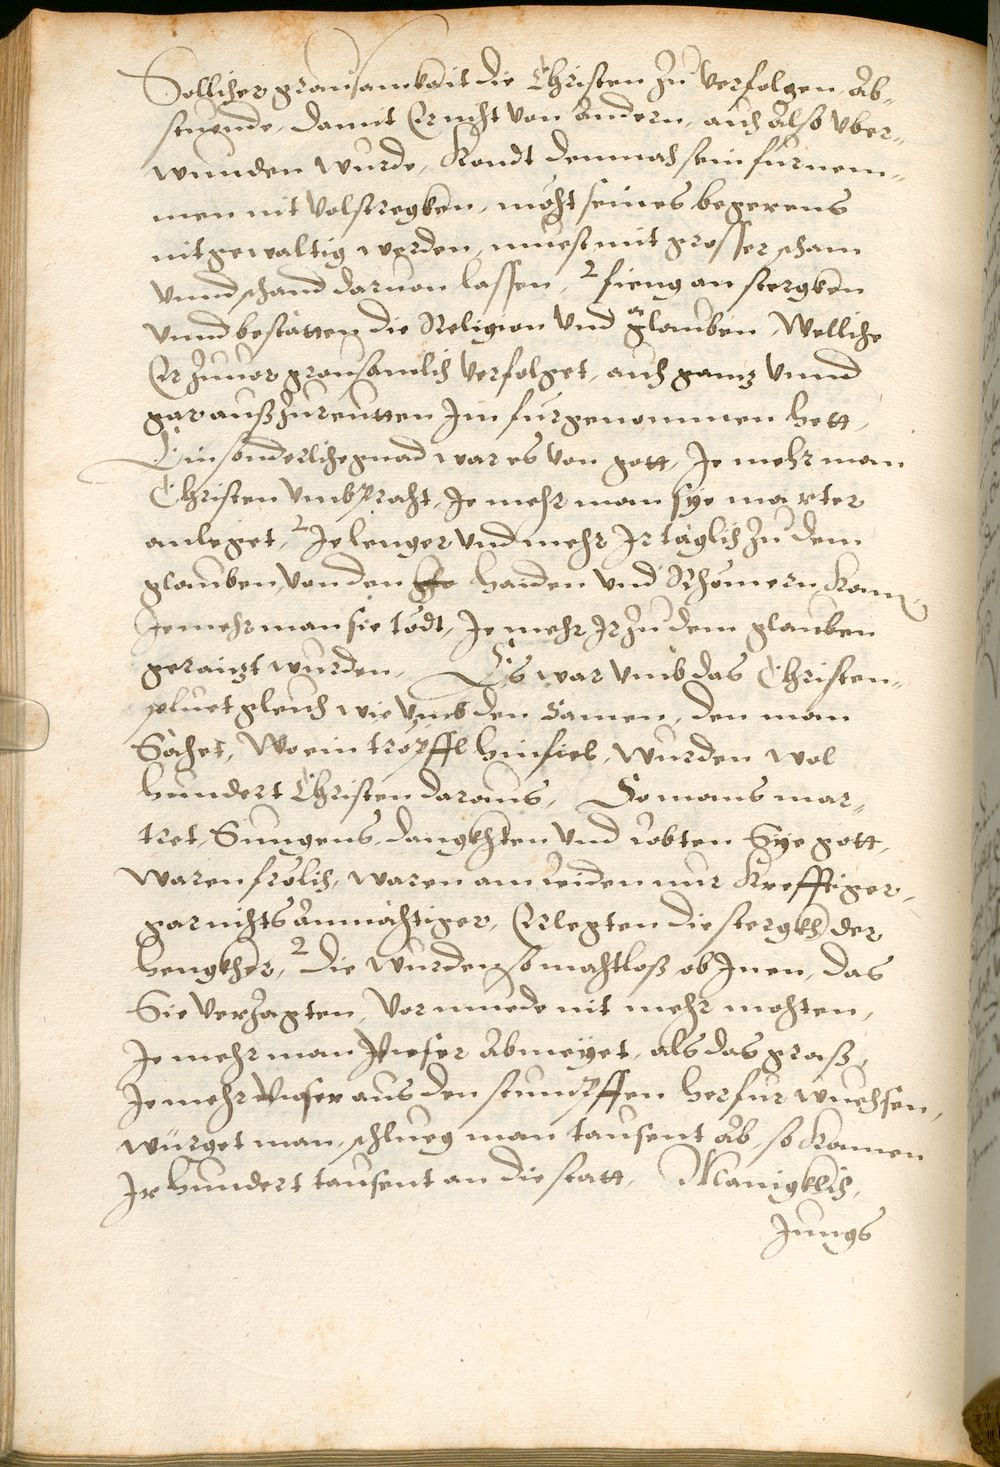 Sollicher grausamkait die Christen zu verfolgen, Ab-
stuende, damit Er nicht von Andern, auch Also vber-
wunden wurde, Kondt dennoch sein fürnem-
men nit volstregken, mocht seines begerens
nit gewaltig werden, muest mit grosser scham
vnnd schand daruon lassen, 2 fieng an stergken
vnnd bestätten die Religion vnd glauben, Welliche
Er zuuor grausamlich verfolget, auch gantz vnnd
gar außzureutten Im fürgenommen hett,
Ein sonderliche gnad war es von gott, Je mehr man
Christen vmbpracht, Je mehr man sye marter
anleget, 2 Je lenger vnd mehr Ir täglich zu dem
glauben, von den haiden vnd Rhömern, Kam,
Je mehr man sie tödt, Je mehr Ir zu dem glauben
geraitzt wurden, Es war vmb das Christen-
pluet gleich wie vmb den Samen, den man
Sähet, Wo ein tröpffl hinfiel, wurden wol
hundert Christen daraus, So mans mar-
tret, Sungens, dangkhten vnd Lobten Sye gott,
waren frölich, waren am Leiden nur Krefftiger,
gar nichts Anmächtiger, Erlegten die stergkh der
hengkher, 2 die wurden so machtloß ob Inen, das
Sie verzagten, Vor muede nit mehr mochten,
Je mehr man Vnser Abmeyet, als das graß,
Je mehr Vnser aus den stumpffen herfür wuechsen,
würget man, schlueg man tausent Ab, so Kamen
Ir hundert tausent an die statt, Manigklich,
Jungs